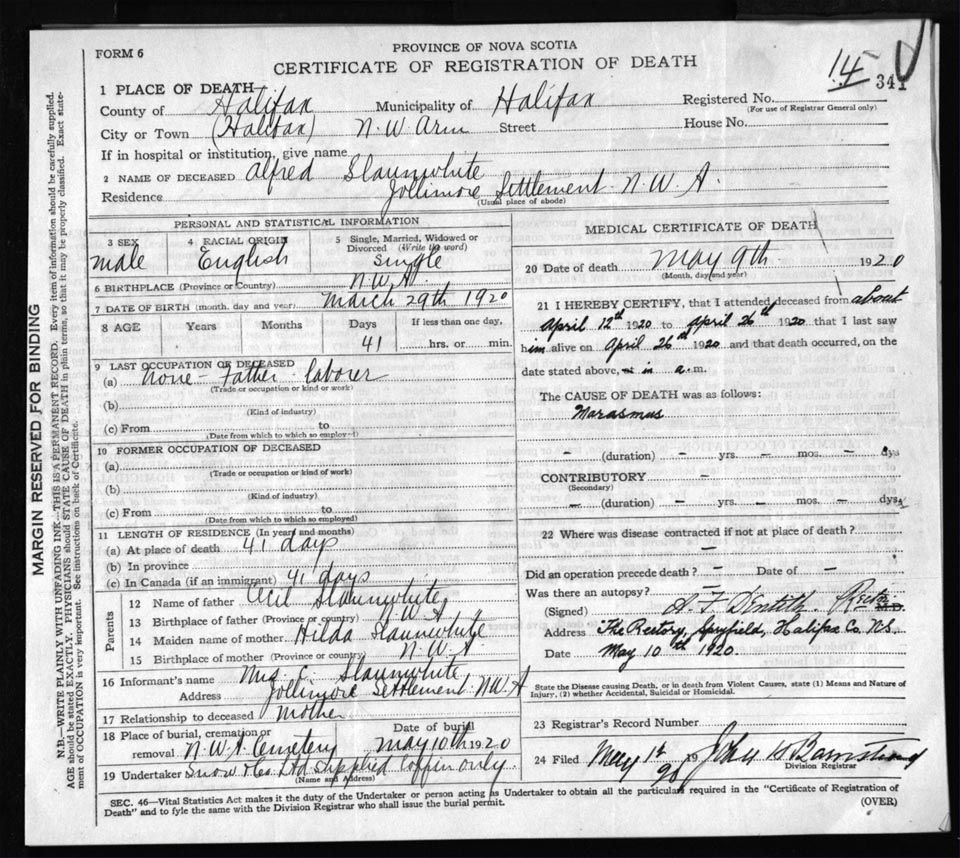 FORM 6
PROVINCE OF NOVA SCOTIA
CERTIFICATE OF REGISTRATION OF DEATH
14
341
1 PLACE OF DEATH
County of Halifax Municipality of Halifax Registered No.
(For use of Registrar General only)
City or Town (Halifax) N.W. Arm Street House No.
If in hospital or institution, give name
2 NAME OF DECEASED Alfred Slaunwhite
Residence Jollimore Settlement N.W.A.
(Usual place of abode)
PERSONAL AND STATISTICAL INFORMATION
3 SEX 4 RACIAL ORIGIN 5 Single, Married, Widowed or Divorced (Write the word)
male English single
6 BIRTHPLACE (Province or Country) N.W.A.
7 DATE OF BIRTH (month, day and year) March 29th 1920
8 AGE Years Months Days If less than one day,
41 hrs. or min.
9 LAST OCCUPATION OF DECEASED
(a) None - Father laborer
(Trade or occupation or kind or work)
(b)
(Kind of industry)
(c) From to
(Date from which to which so employed)
10 FORMER OCCUPATION OF DECEASED
(a)
(Trade or occupation or kind of work)
(b)
(Kind of industry)
(c) From to
(Date from which to which so employed)
11 LENGTH OF RESIDENCE (In years and months)
(a) At place of death 41 days
(b) In province
(c) In Canada (if an immigrant) 41 days
Parents
12 Name of father Cecil Slaunwhite
13 Birthplace of father (Province or country) N.W.A.
14 Maiden name of mother Hilda Slaunwhite
15 Birthplace of mother (Province or country) N.W.A.
16 Informant's name Mrs C. Slaunwhite
Address Jollimore Settlement N.W.A
17 Relationship to deceased Mother
18 Place of burial, cremation or removal N.W.A. Cemetery Date of burial May 10th 1920
19 Undertaker Snow & Co. Ltd supplied coffin only.
(Name and Address)
MEDICAL CERTIFICATE OF DEATH
20 Date of death May 9th 1920
(Month, day and year)
21 I HEREBY CERTIFY, that I attended deceased from about
April 12th 1920 to April 26th 1920 that I last saw
him alive on April 26th 1920 and that death occurred, on the
date stated above, at in a.m.
The CAUSE OF DEATH was as follows:
Marasmus
- (duration) - yrs. - mos. - dys
CONTRIBUTORY -
(Secondary)
- (duration) - yrs. - mos. - dys.
22 Where was disease contracted if not at place of death?
-
Did an operation precede death? - Date of -
Was there an autopsy? -
(Signed) Rector M.D.
Address The Rectory, Spryfield, Halifax Co. N.S.
Date May 10th 1920.
State the Disease causing Death, or in death from Violent Causes, state (1) Means and Nature of
Injury, (2) whether Accidental, Suicidal or Homicidal.
23 Registrar's Record Number
24 Filed May 19
Division Registrar
SEC. 46—Vital Statistics Act makes it the duty of the Undertaker or person acting as Undertaker to obtain all the particulars required in the "Certificate of Registration of
Death" and to fyle the same with the Division Registrar who shall issue the burial permit.
(OVER)
MARGIN RESERVED FOR BINDING
N.B.—WRITE PLAINLY WITH UNFADING INK—THIS IS A PERMANENT RECORD. Every item of information should be carefully supplied.
AGE should be stated EXACTLY. PHYSICIANS should STATE CAUSE OF DEATH in plain terms, so that it may be properly classified. Exact state-
ment of OCCUPATION is very important. See instructions on back of Certificate.